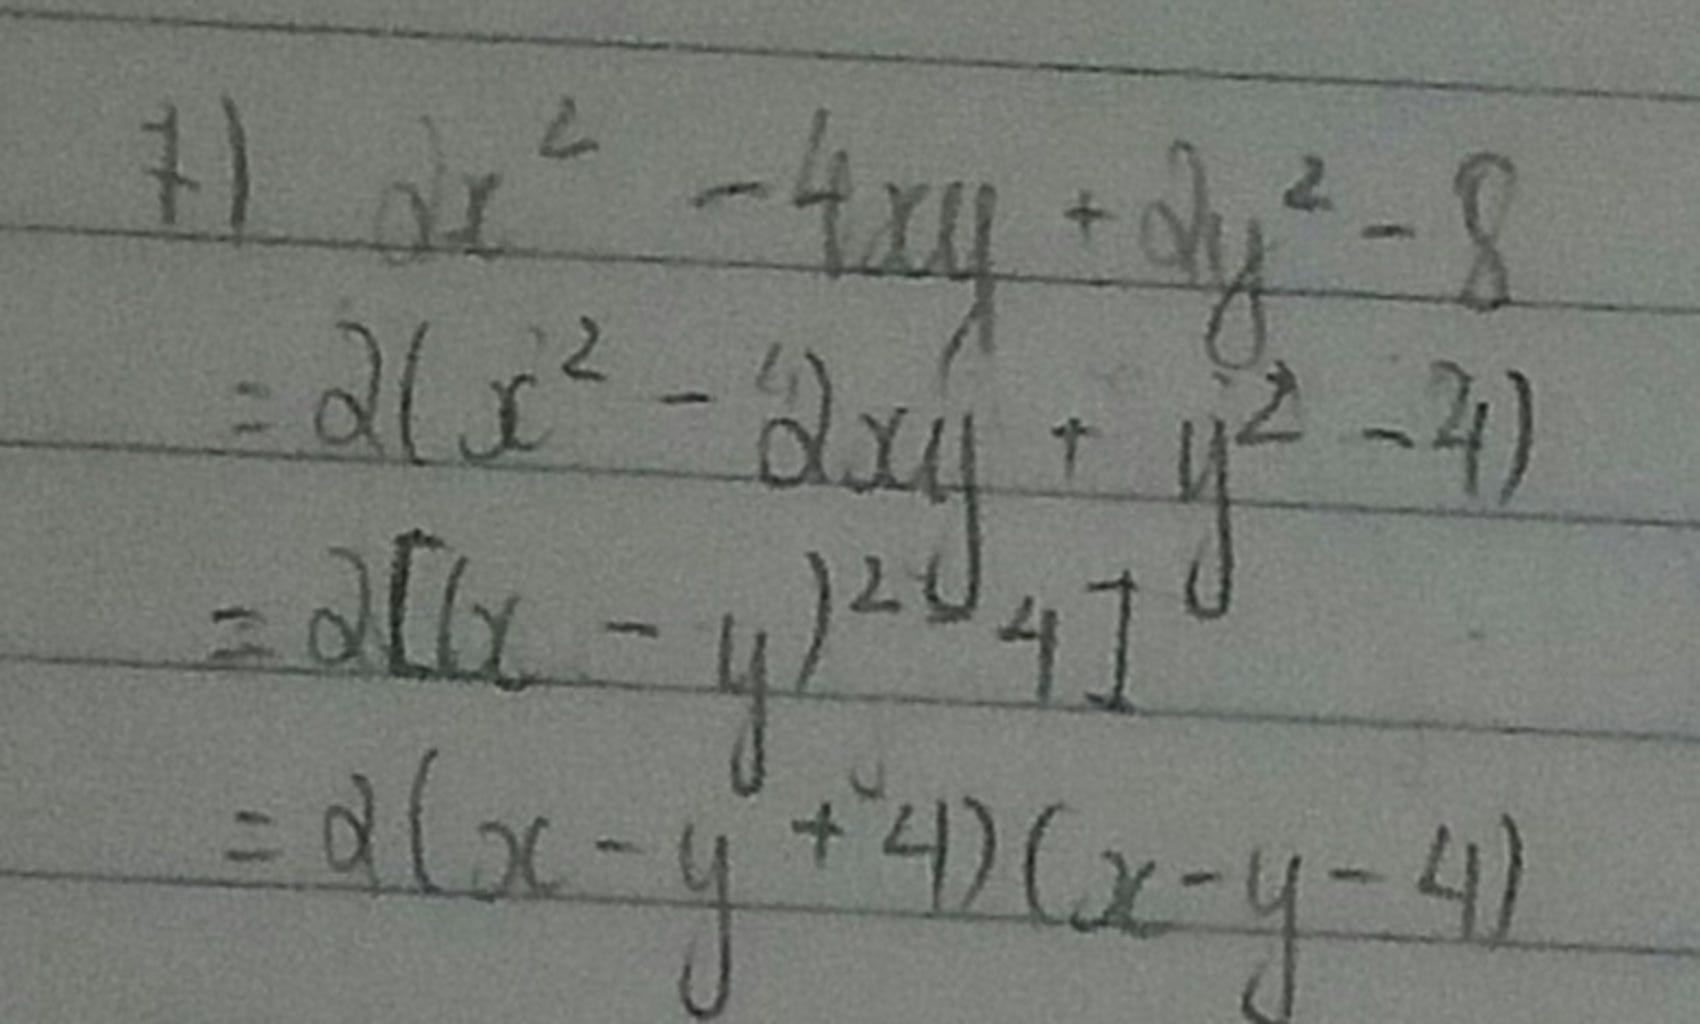 7) 2x² - 4xy + 2y² - 8
= 2(x² - 2xy + y² - 4)
= 2[(x - y)² - 4]
= 2(x - y + 4)(x - y - 4)